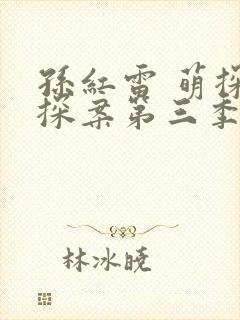 孫紅雷 萌探
探案第三季
林冰曉